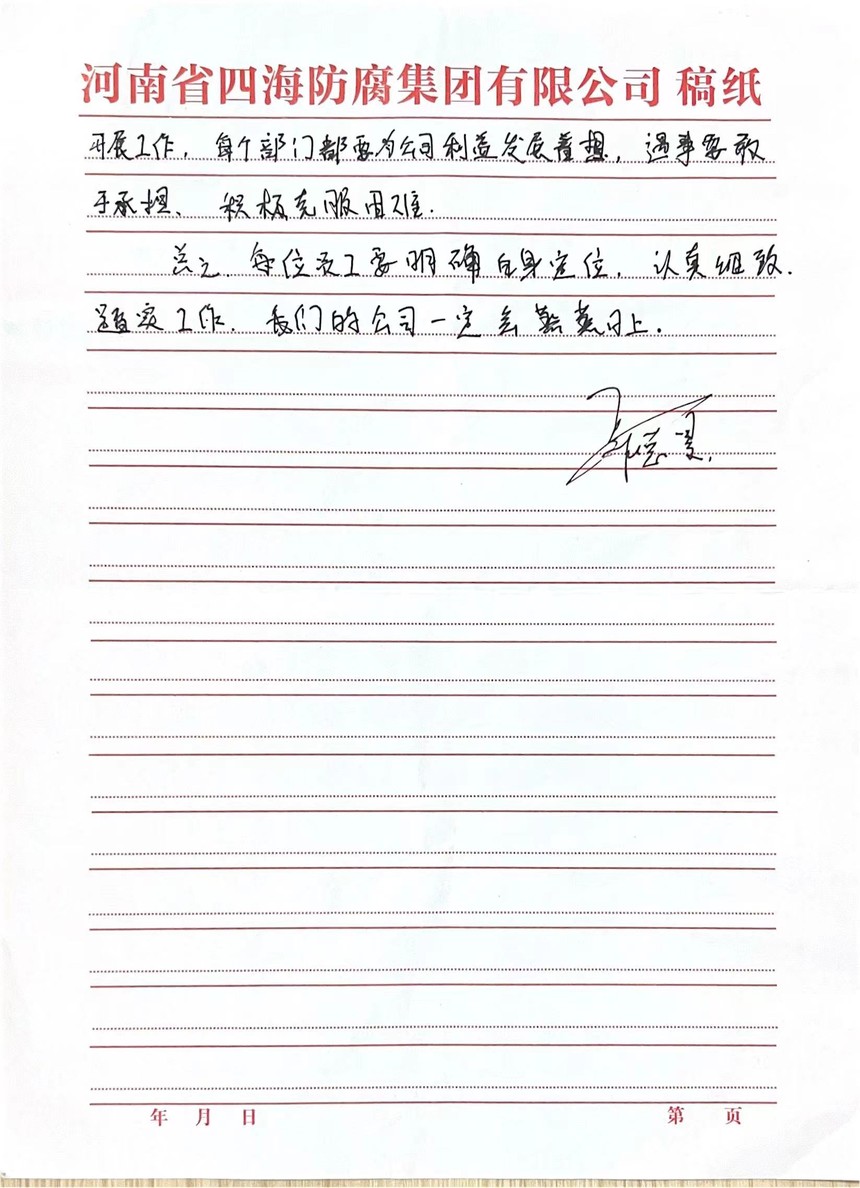 河南省四海防腐集团有限公司 稿纸
开展工作，每个部门都要为公司利益发展着想，遇事要敢
于承担、积极克服困难.
总之.每位员工要明确自身定位，认真细致.
踏实工作.我们的公司一定会蒸蒸日上.
年 月 日
第 页